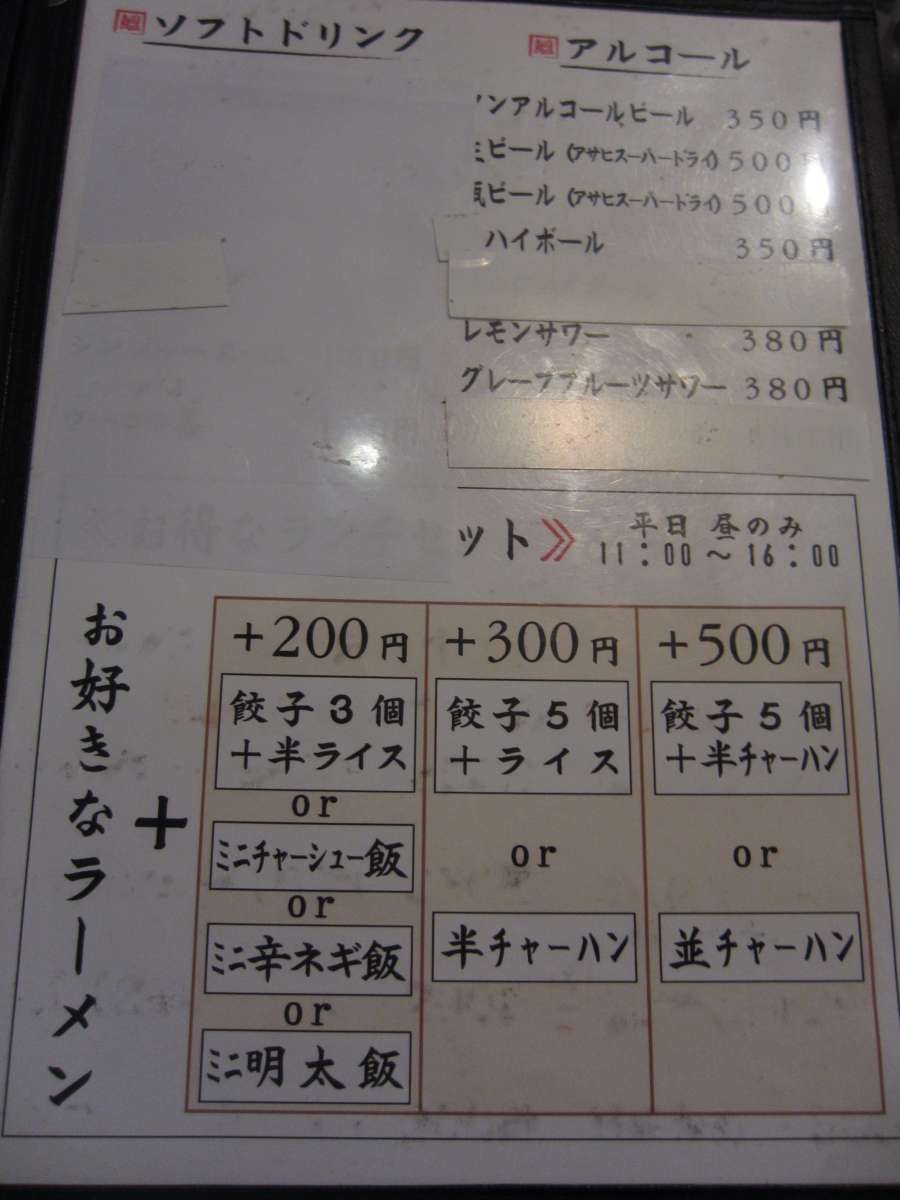 ソフトドリンク
アルコール
ンアルコールビール 350円
ビール (アサヒスーパードライ) 500
ビール (アサヒスーパードライ) 500
ハイボール 350円
レモンサワー 380円
グレープフルーツサワー 380円
お得なランチセット》 平日 昼のみ
11:00～16:00
お好きなラーメン
+
+200円
餃子3個
+半ライス
or
ミニチャーシュー飯
or
ミニ辛ネギ飯
or
ミニ明太飯
+300円
餃子5個
+ライス
or
半チャーハン
+500円
餃子5個
+半チャーハン
or
並チャーハン